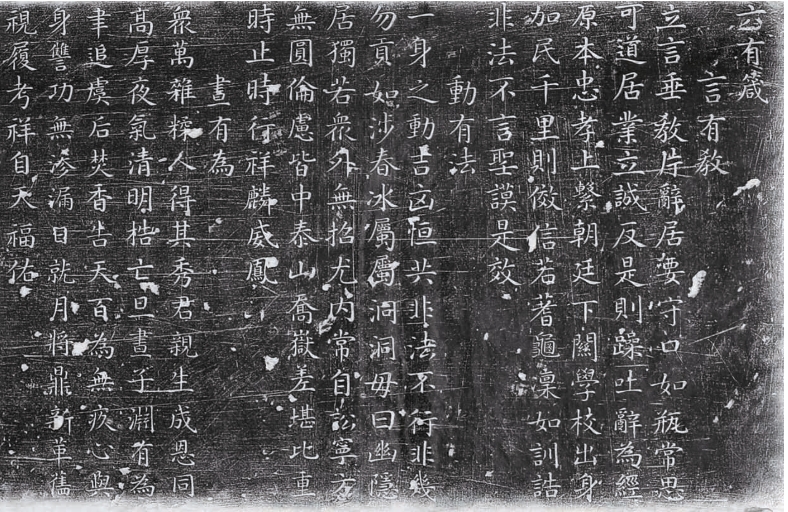 六有箴
言有敎
立言垂敎片辭居要守口如瓶常思
可道居業立誠反是則躁吐辭為經
原本忠孝上繫朝廷下關學校出身
加民千里則傚信若蓍龜凜如訓誥
非法不言聖謨是效
動有法
一身之動吉凶恒共非法不行非幾
勿貢如涉春冰屬屬洞洞毋曰幽隱
居獨若衆外無招尤內常自訟寧方
無圓倫慮皆中泰山喬嶽差堪比重
時止時行祥麟威鳳
晝有為
衆萬雜糅人得其秀君親生成恩同
高厚夜氣清明梏亡旦晝子淵有為
聿追虞后焚香告天百為無疚心與
身讐功無滲漏日就月將鼎新革舊
視履考祥自天福佑